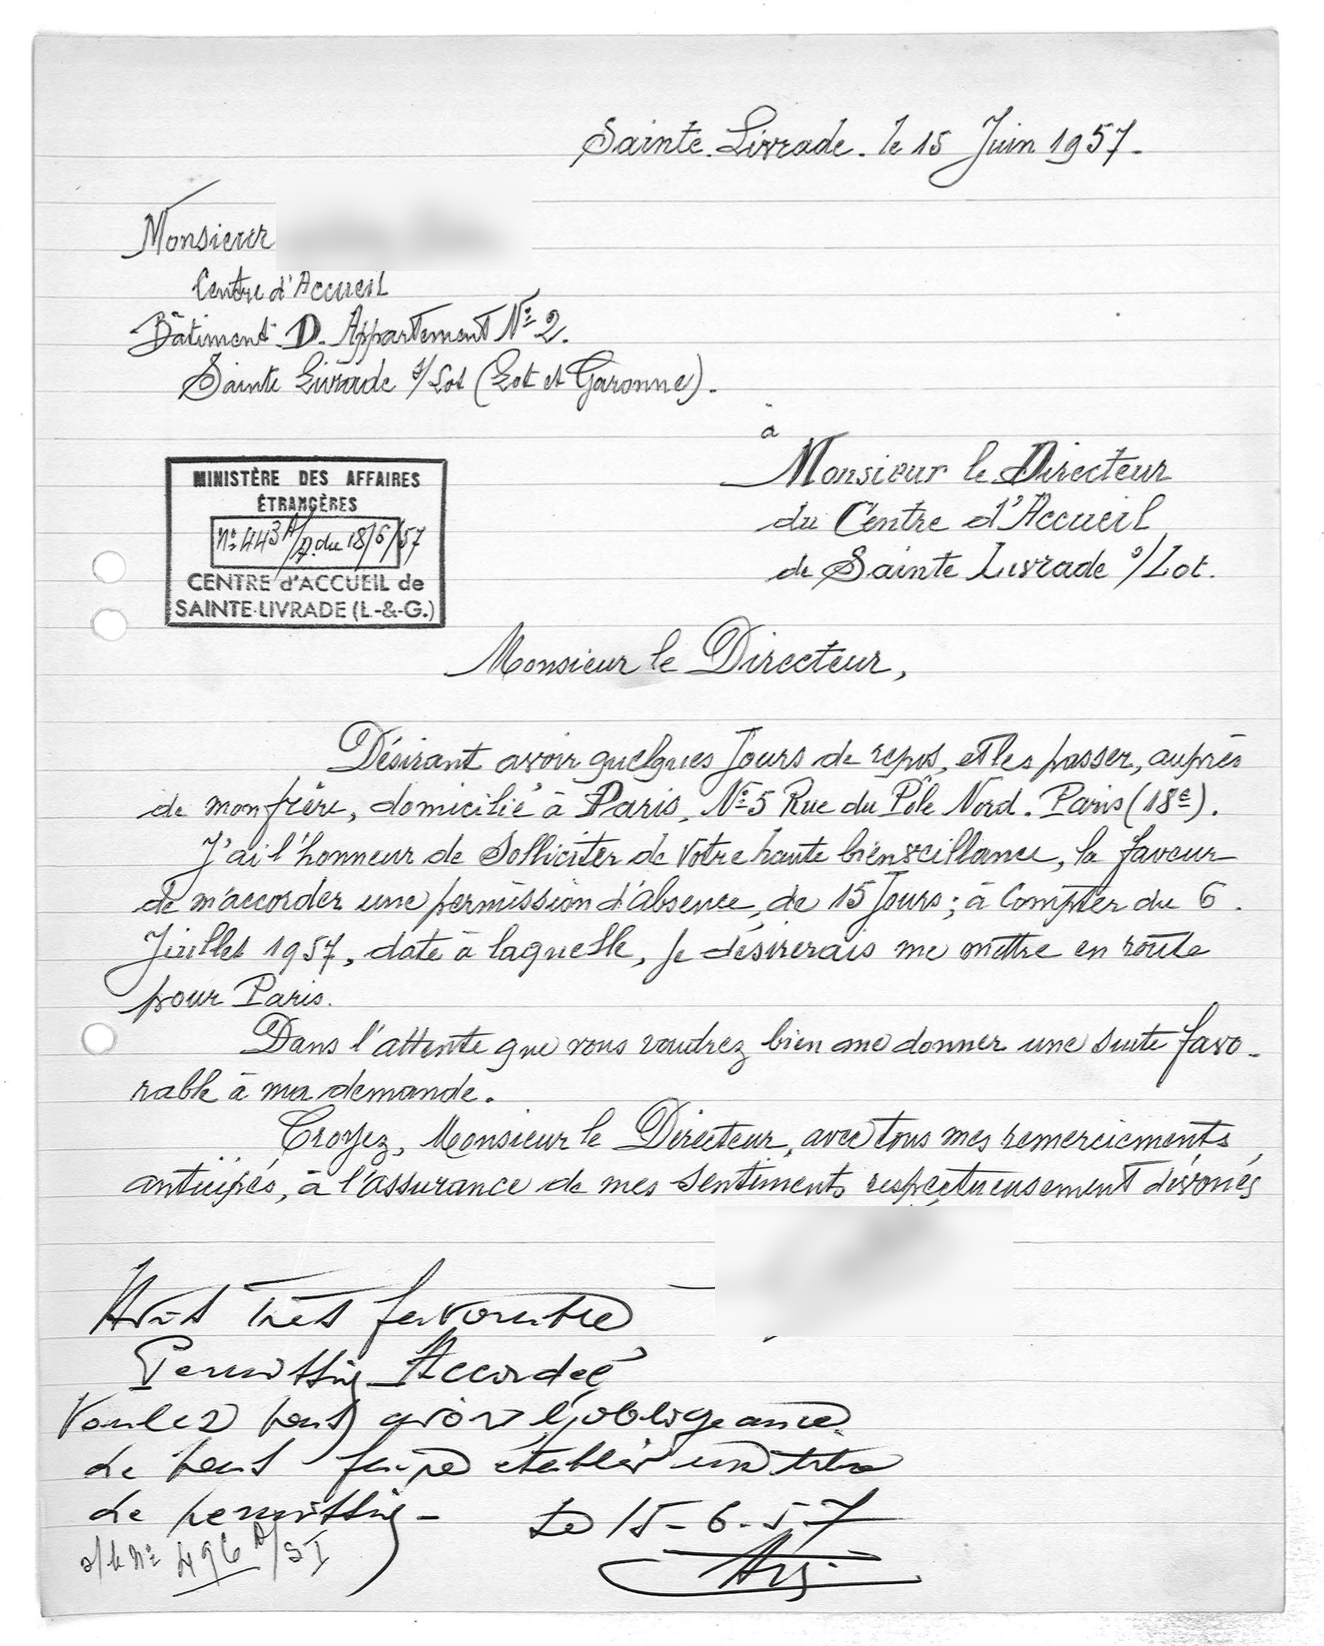 Sainte-Livrade. le 15 Juin 1957.
Monsieur
Centre d'Accueil
Bâtiment D. Appartement N° 2.
Sainte Livrade s/Lot (Lot et Garonne).
à
Monsieur le Directeur
du Centre d'Accueil
de Sainte Livrade s/Lot.
MINISTÈRE DES AFFAIRES
ÉTRANGÈRES
N° 443 A/D. du 18/6/57
CENTRE d'ACCUEIL de
SAINTE-LIVRADE (L.-&-G.)
Monsieur le Directeur,
Désirant avoir quelques Jours de repos, et les passer, auprès
de mon frère, domicilié à Paris, N° 5 Rue du Pôle Nord. Paris (18e).
J'ai l'honneur de Solliciter de Votre haute bienveillance, la faveur
de m'accorder une permission d'absence, de 15 Jours; à Compter du 6
Juillet 1957, date à laquelle, je désirerais me mettre en route
pour Paris.
Dans l'attente que vous voudrez bien me donner une suite favo-
rable à ma demande.
Croyez, Monsieur le Directeur, avec tous mes remerciements
anticipés, à l'assurance de mes sentiments respectueusement dévoués
Avis très favorable
Permission Accordée
Voulez vous avoir l'obligeance
de vous faire établir un titre
de permission -
Le 15-6-57
s/le N° 496 A/SI